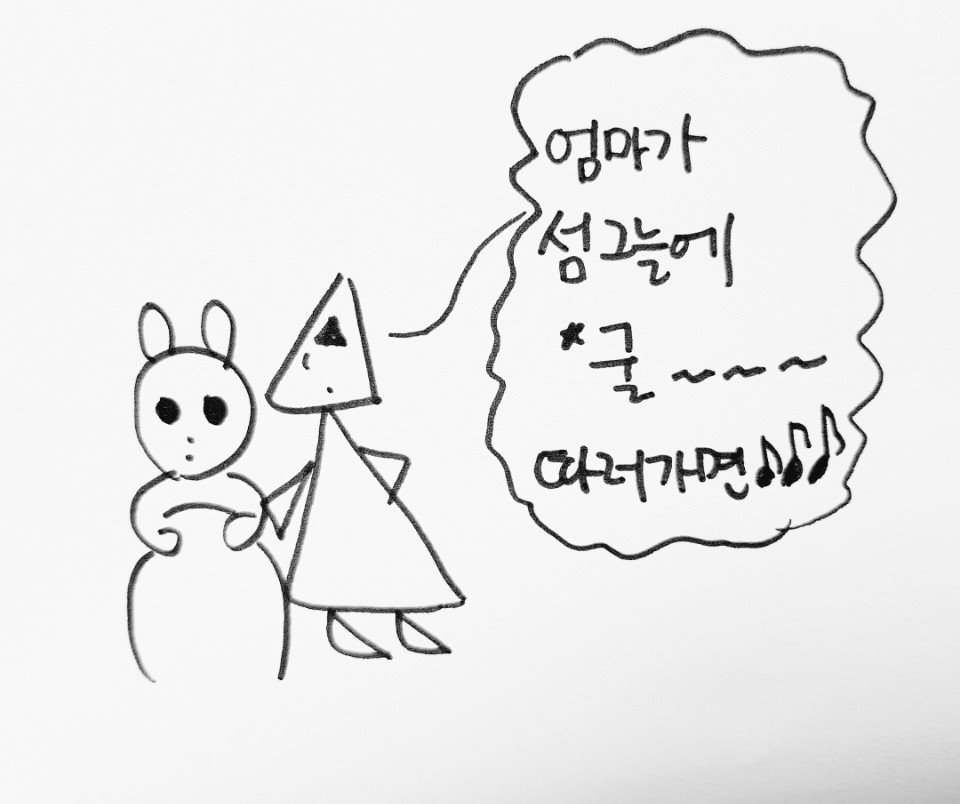 엄마가
섬그늘에
*굴 ~~~
따러가면♪♪♪